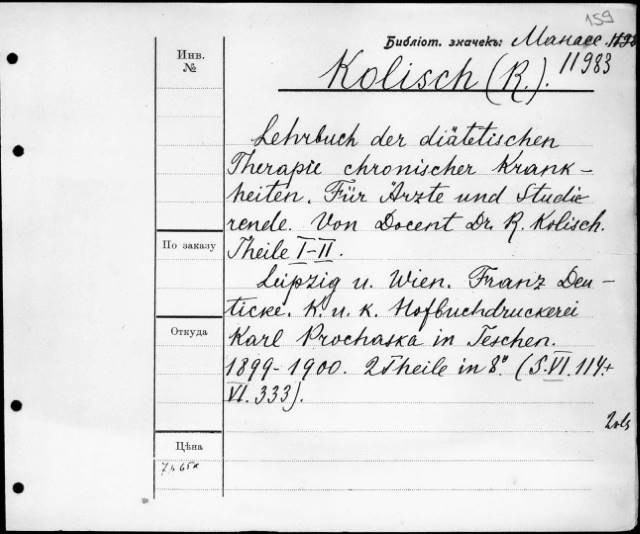 159
Библіот. значекъ: Манасе.
11983
Инв.
№
Kolisch (R.).
Lehrbuch der diätetischen
Therapie chronischer Krank-
heiten. Für Ärzte und Studie
rende. Von Docent Dr. R. Kolisch.
По заказу
Theile I-II.
Leipzig u. Wien. Franz Deu-
ticke. K. u. k. Hofbuchdruckerei
Откуда
Karl Prochaska in Teschen.
1899-1900. 2 Theile in 8°. (S. VI. 114 +
VI. 333).
Цѣна